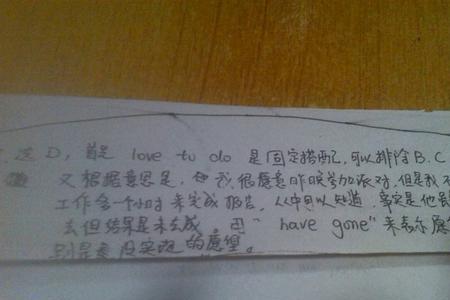 选D,首先 love to do 是固定搭配,可以排除B.C
又根据意思是,我很愿意昨晚参加派对,但是我
工作 个小时 来完成报告,从中可以知道,事实是他
去但结果是未去成,用“have gone”来表示愿
没实现的愿望。